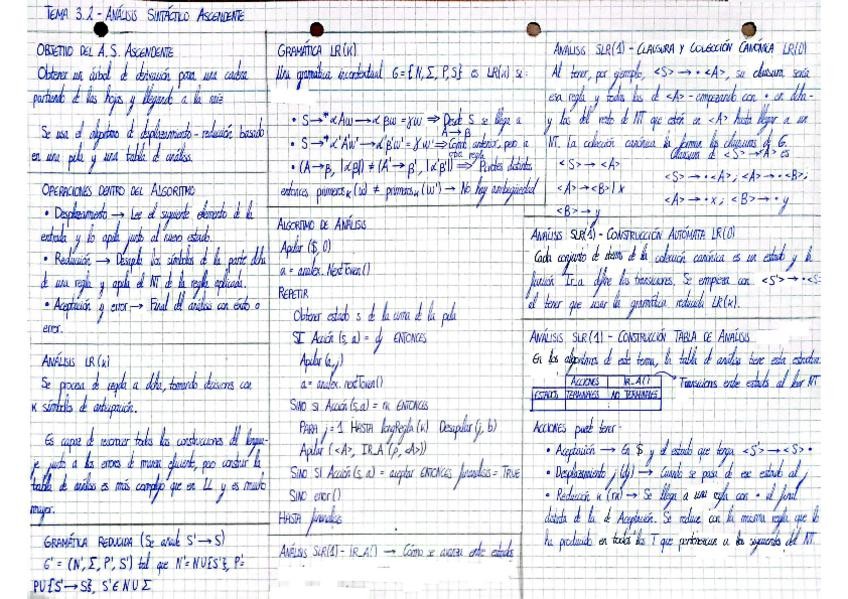 TEMA 3.2 - ANÁLISIS SINTÁCTICO ASCENDENTE
OBJETIVO DEL A.S. ASCENDENTE
Obtener un árbol de derivación para una cadena
partiendo de las hojas y llegando a la raíz
Se usa el algoritmo de desplazamiento-reducción basado
en una pila y una tabla de análisis.
OPERACIONES DENTRO DEL ALGORITMO
• Desplazamiento → Lee el siguiente elemento de la
entrada y lo apila junto al nuevo estado.
• Reducción → Desapila los símbolos de la parte dcha
de una regla y apila el NT de la regla aplicada.
• Aceptación y error → Final del análisis con éxito o
error.
ANÁLISIS LR(k)
Se procesa de izqda a dcha, tomando decisiones con
k símbolos de anticipación.
Es capaz de reconocer todas las construcciones del lengua-
je junto a los errores de manera eficiente, pero construir la
tabla de análisis es más complejo que en LL y es mucho
mayor.
GRAMÁTICA REDUCIDA (Se añade S'→S)
G' = (N', Σ, P', S') tal que N'=NU{S'}, P'=
PU{S'→S}, S'∉NUΣ
GRAMÁTICA LR(k)
Una gramática incontextual G={N,Σ,P,S} es LR(k) si:
• S→*αAw→αβw=γw ⇒ Desde S se llega a
A→β
• S→*α'A'w'→α'β'w'=γw' ⇒ anterior, pero
otra regla
• (A→β, |αβ|) ≠ (A'→β', |α'β'|) ⇒ distintos
entonces primerosₖ(w) ≠ primerosₖ(w') → No hay ambigüedad
ALGORITMO DE ANÁLISIS
Apilar ($, 0)
a = analex.NextToken()
REPETIR
Obtener estado s de la cima de la pila
SI Acción(s, a) = dj ENTONCES
Apilar(a,j)
a = analex.nextToken()
SINO SI Acción(s,a) = rk ENTONCES
PARA j=1 HASTA longRegla(k) Desapilar(j, b)
Apilar(<A>, IR_A(p,<A>))
SINO SI Acción(s,a) = aceptar ENTONCES finanalisis = TRUE
SINO error()
HASTA finanalisis
ANÁLISIS SLR(1) - IR_A() → Cómo se avanza entre estados
ANÁLISIS SLR(1) - CLAUSURA Y COLECCIÓN CANÓNICA LR(0)
Al tener, por ejemplo, <S>→•<A>, su clausura sería
esa regla y todas las de <A> -empezando con • en dcha-
y las del resto de NT que estén en <A> hasta llegar a un
NT. La colección canónica la forman las clausuras de G.
Clausura de <S>→<A> es
<S>→<A>
<S>→•<A>; <A>→•<B>;
<A>→<B>|x
<A>→•x; <B>→•y
<B>→y
ANÁLISIS SLR(1) - CONSTRUCCIÓN AUTÓMATA LR(0)
Cada conjunto de items de la colección canónica es un estado y la
función Ir_a define las transiciones. Se empieza con <S'>→•<S>
al tener que usar la gramática reducida LR(k).
ANÁLISIS SLR(1) - CONSTRUCCIÓN TABLA DE ANÁLISIS
En los algoritmos de este tema, la tabla de análisis tiene esta estructura
ACCIONES IR_A()
→ Transiciones entre estados al leer NT
ESTADOS TERMINALES NO TERMINALES
ACCIONES puede tener-
• Aceptación → En $ y el estado que tenga <S'>→<S>•
• Desplazamiento j (dj) → Cuando se pasa de ese estado al j
• Reducción k (rk) → Se llega a una regla con • al final
distinta de la de Aceptación. Se reduce con la misma regla que lo
ha producido en todos los T que pertenezcan a los siguientes del NT.